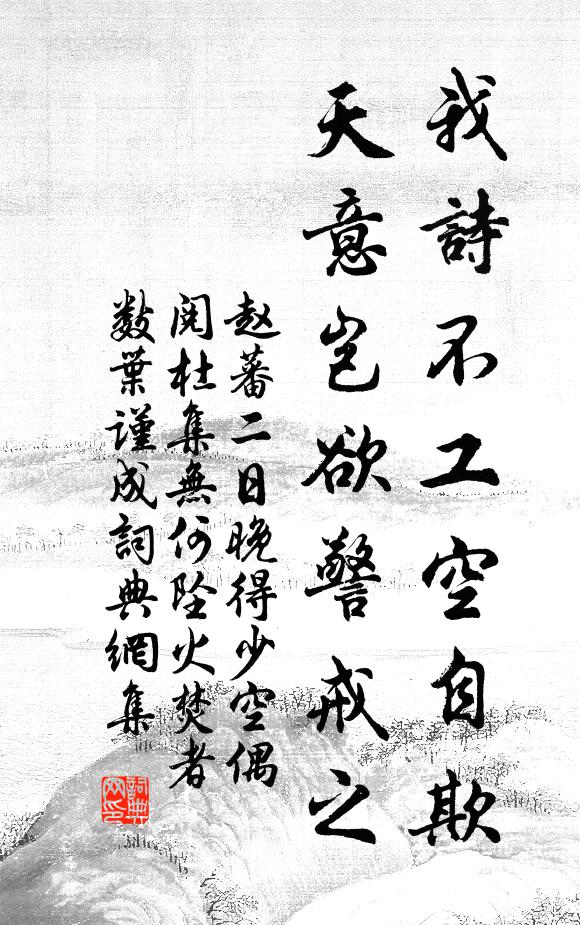 我詩不工空自欺
天意岂欲警戒之
赵蕃二日晚得少空偶
阅杜集無何坠火焚者
数葉谨成詞典網集
詞典
网印